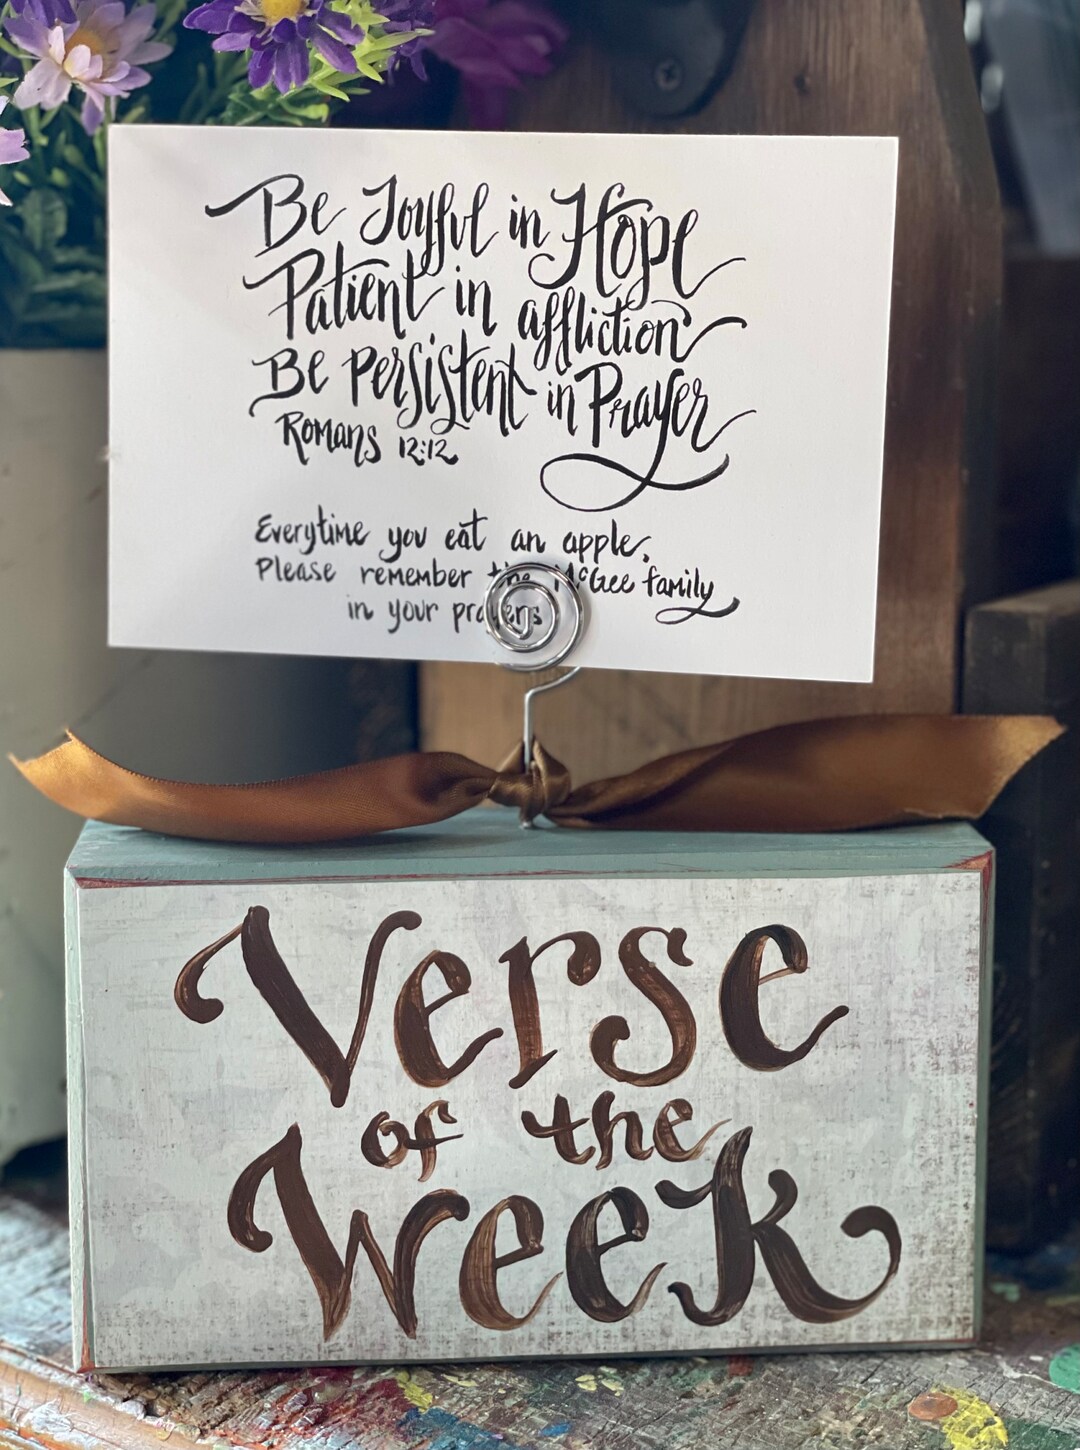 Be Joyful in Hope
Patient in affliction
Be Persistent in Prayer
Romans 12:12
Everytime you eat an apple,
Please remember the McGee family
in your prayers
Verse
of the
Week